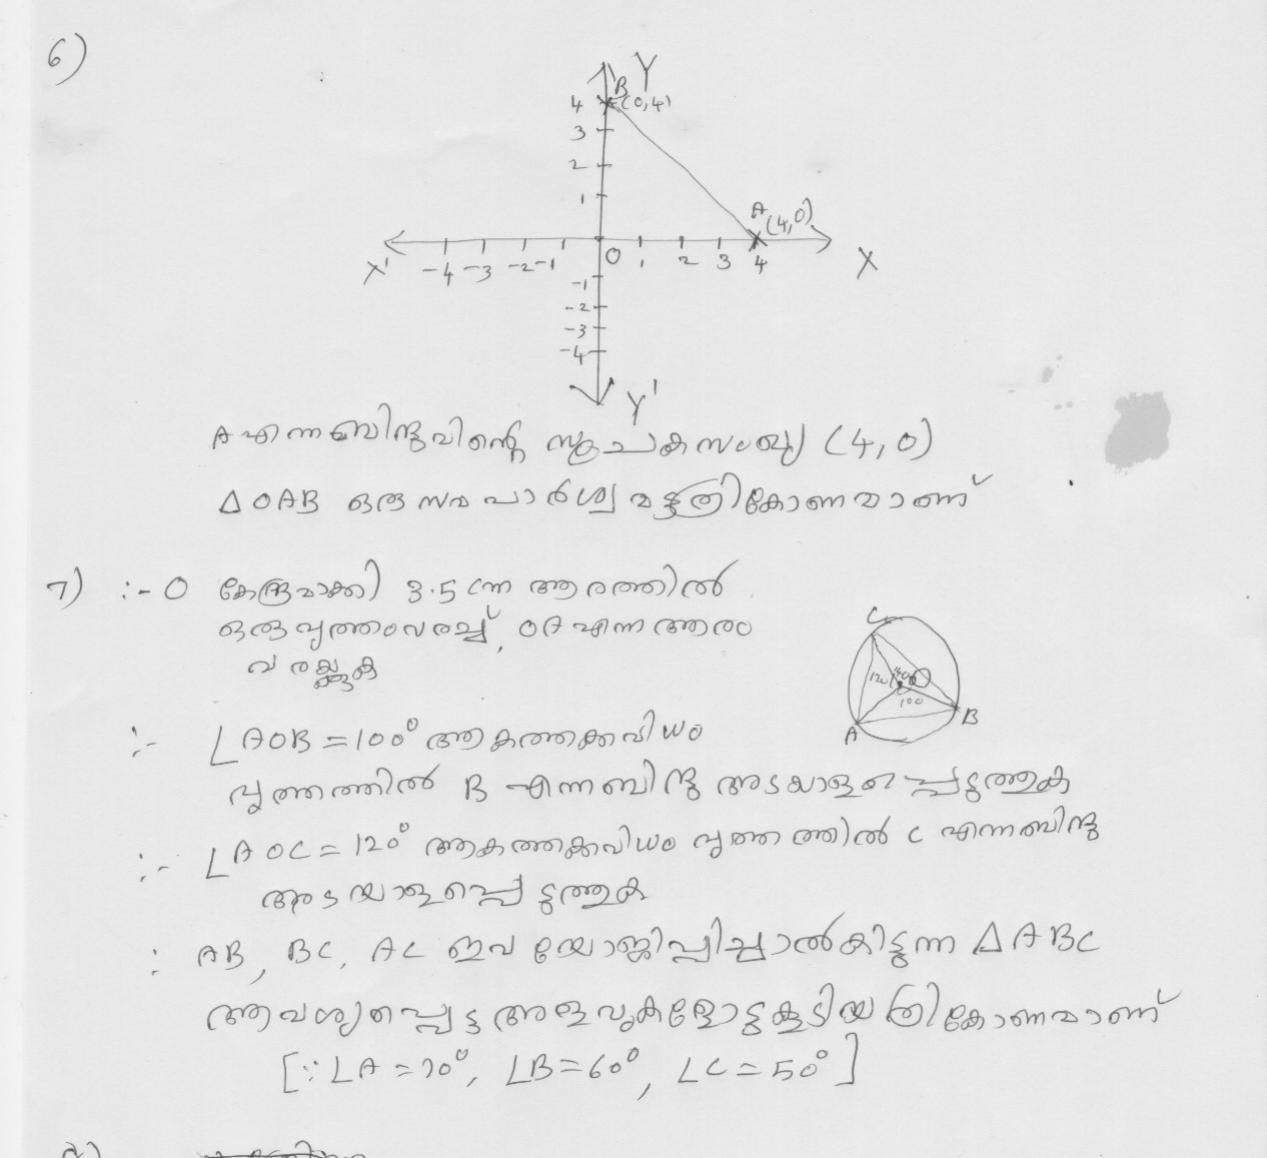 6)
Y
B
4 (0,4)
3
2
1
A (4,0)
X' -4 -3 -2 -1 0 1 2 3 4 X
-1
-2
-3
-4
Y'
A എന്ന ബിന്ദുവിന്റെ സൂചകസംഖ്യ (4,0)
∆OAB ഒരു സമപാർശ്വ മട്ടത്രികോണമാണ്
7) :- O കേന്ദ്രമാക്കി 3.5 cm ആരത്തിൽ
ഒരു വൃത്തം വരച്ച്, OA എന്ന ആരം
വരയ്ക്കുക
C
120 140
100
A B
:- ∠AOB = 100° ആകത്തക്കവിധം
വൃത്തത്തിൽ B എന്ന ബിന്ദു അടയാളപ്പെടുത്തുക
:- ∠AOC = 120° ആകത്തക്കവിധം വൃത്തത്തിൽ C എന്ന ബിന്ദു
അടയാളപ്പെടുത്തുക
: AB, BC, AC ഇവ യോജിപ്പിച്ചാൽ കിട്ടുന്ന ∆ABC
ആവശ്യപ്പെട്ട അളവുകളോടുകൂടിയ ത്രികോണമാണ്
[∵ ∠A = 70°, ∠B = 60°, ∠C = 50°]